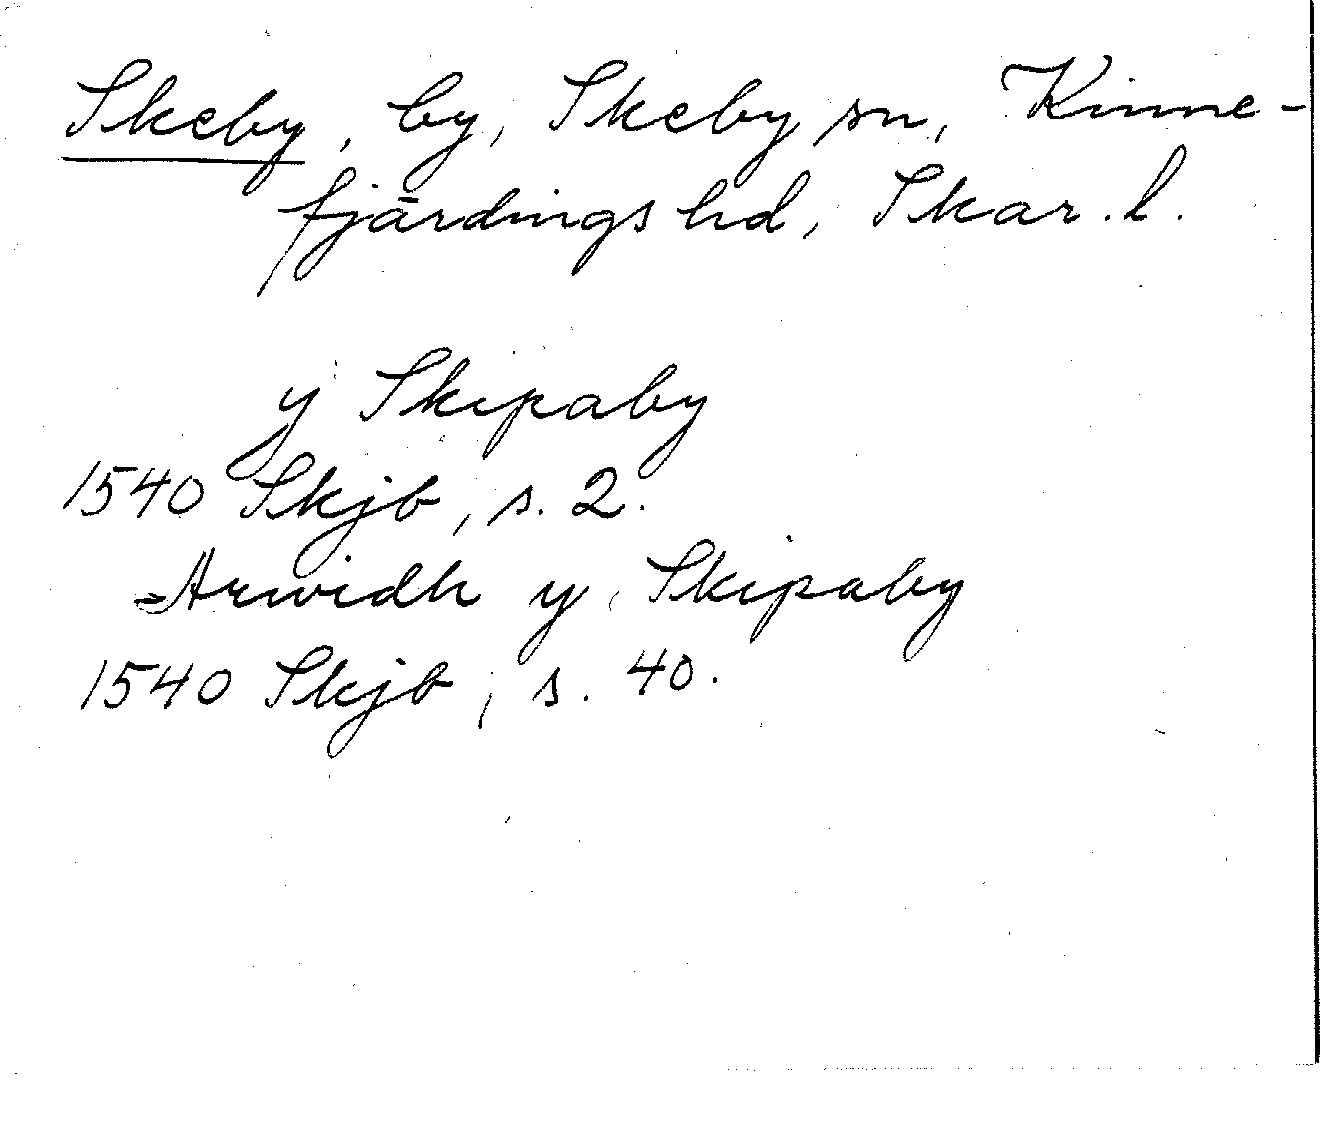 Skeby, by, Skeby sn, Kinne-
fjärdings hd, Skar. l.
y Skipaby
1540 Skjb, s. 2.
Arwidh y Skipaby
1540 Skjb, s. 40.